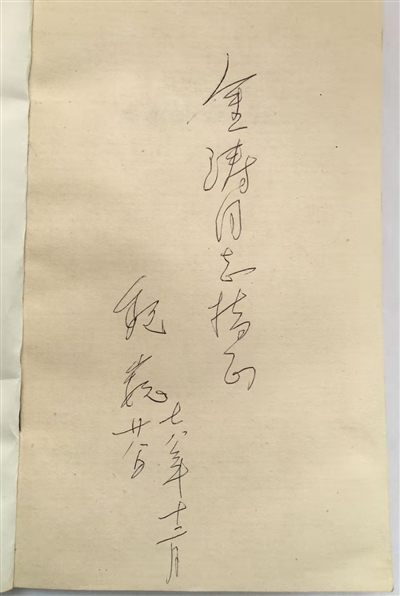 金涛同志指正
魏巍
七八年十二月
廿八日